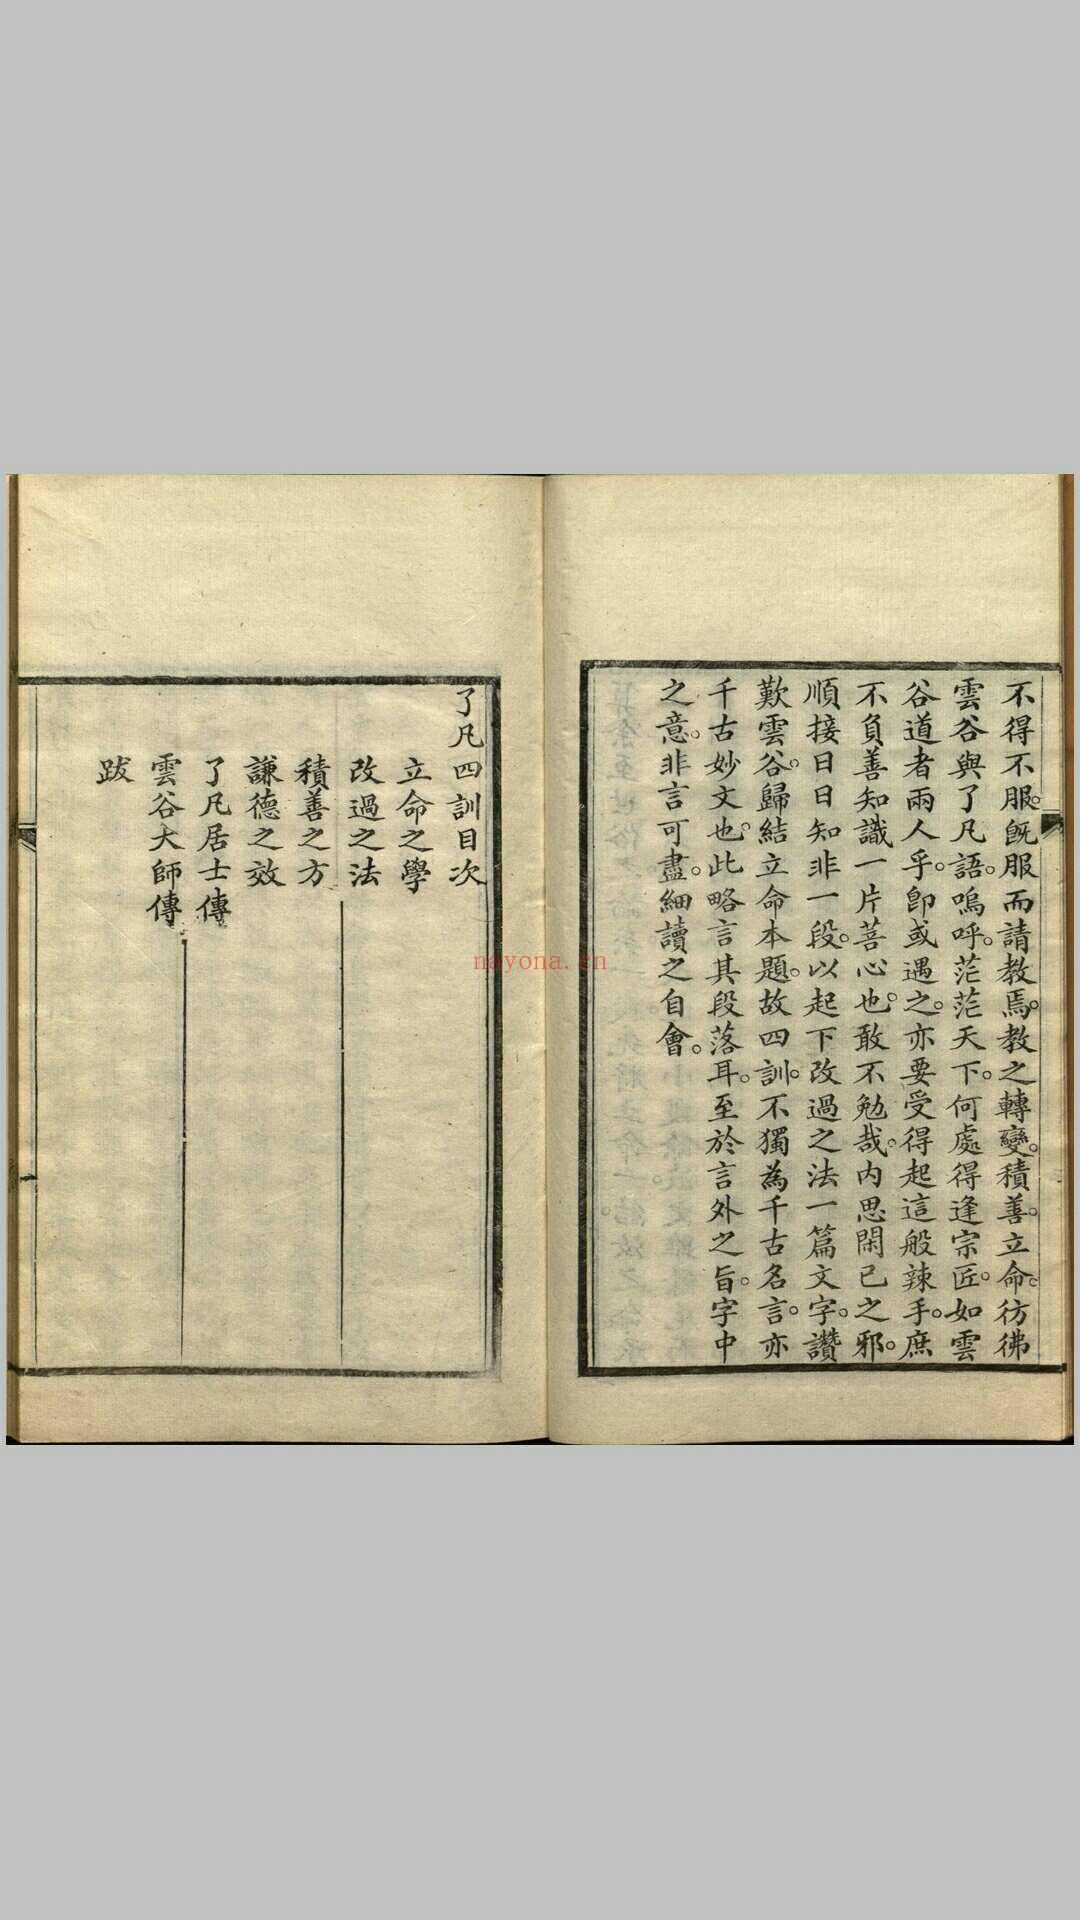 不得不服。既服而請教焉。教之轉變。積善。立命。彷彿
雲谷與了凡語。嗚呼。茫茫天下。何處得逢宗匠。如雲
谷道者兩人乎。卽或遇之。亦要受得起這般辣手。庶
不負善知識一片菩心也。敢不勉哉。内思閑已之邪。
順接日日知非一段。以起下改過之法一篇文字。讚
歎雲谷。歸結立命本題。故四訓。不獨為千古名言。亦
千古妙文也。此略言其段落耳。至於言外之旨。字中
之意。非言可盡。細讀之自會。
了凡四訓目次
立命之學
改過之法
積善之方
謙德之效
了凡居士傳
雲谷大師傳
跋
nayona.cn